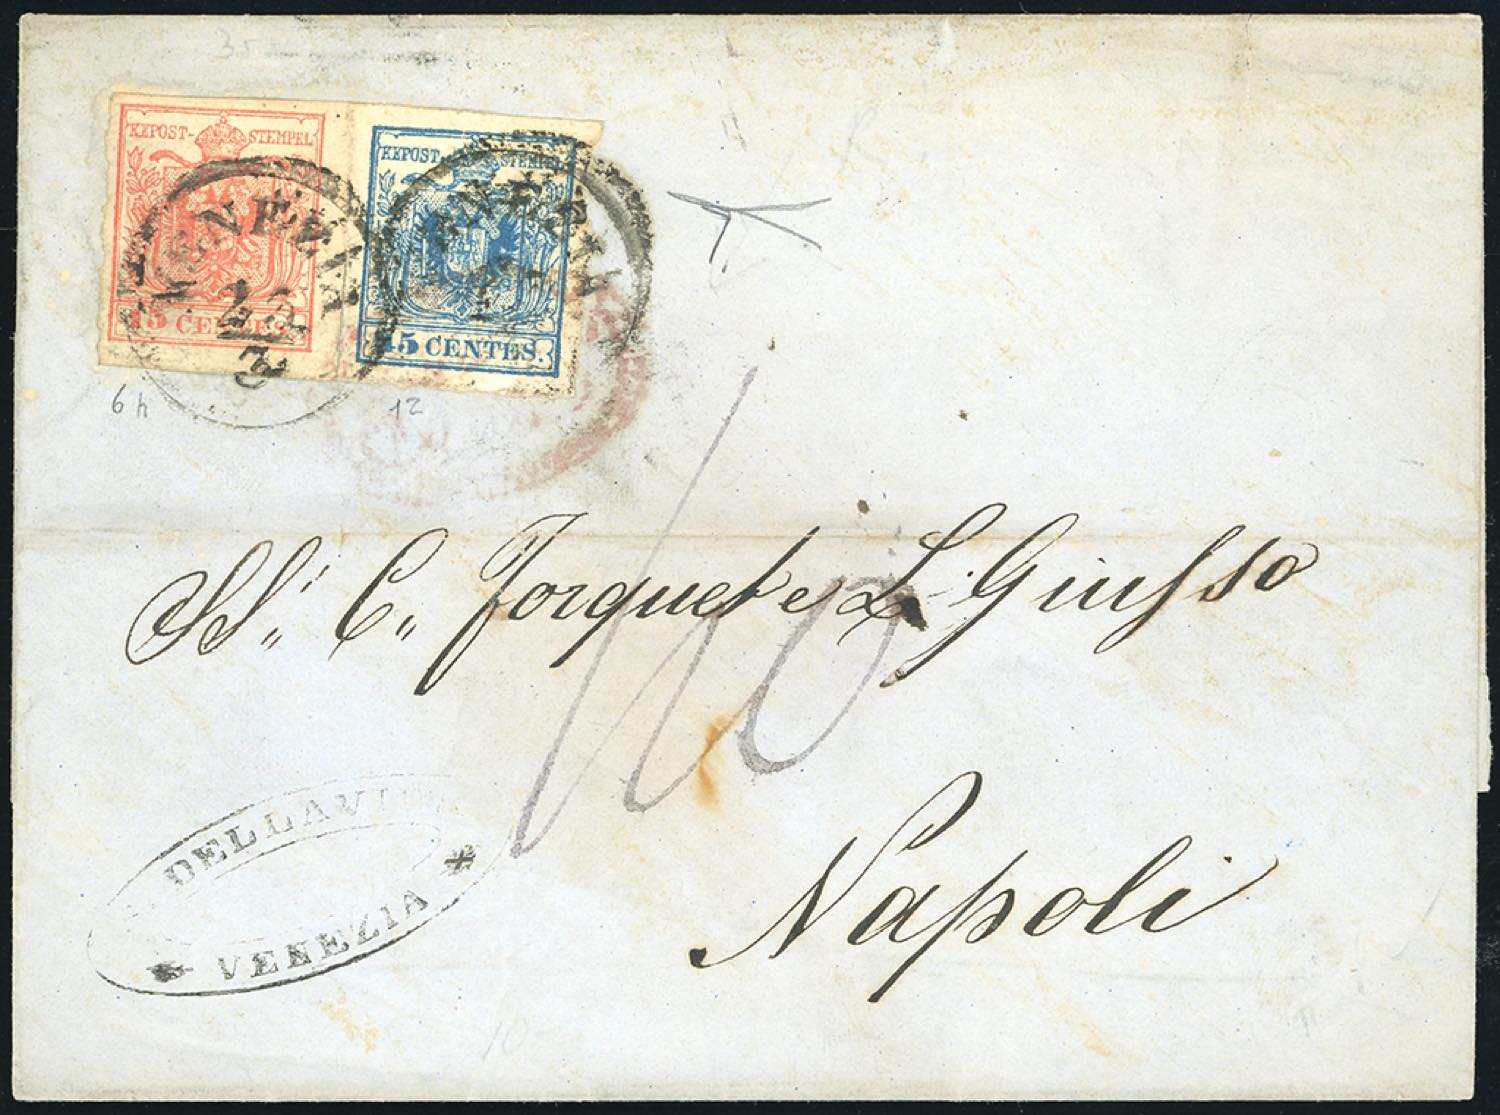 35
KKPOST-STEMPEL
15 CENTES.
KKPOST-STEMPEL
45 CENTES.
VENEZIA
VENEZIA
6 h
12
SS.ri C. Forquet e L. Giusso
Napoli
DELLAVI
VENEZIA
10